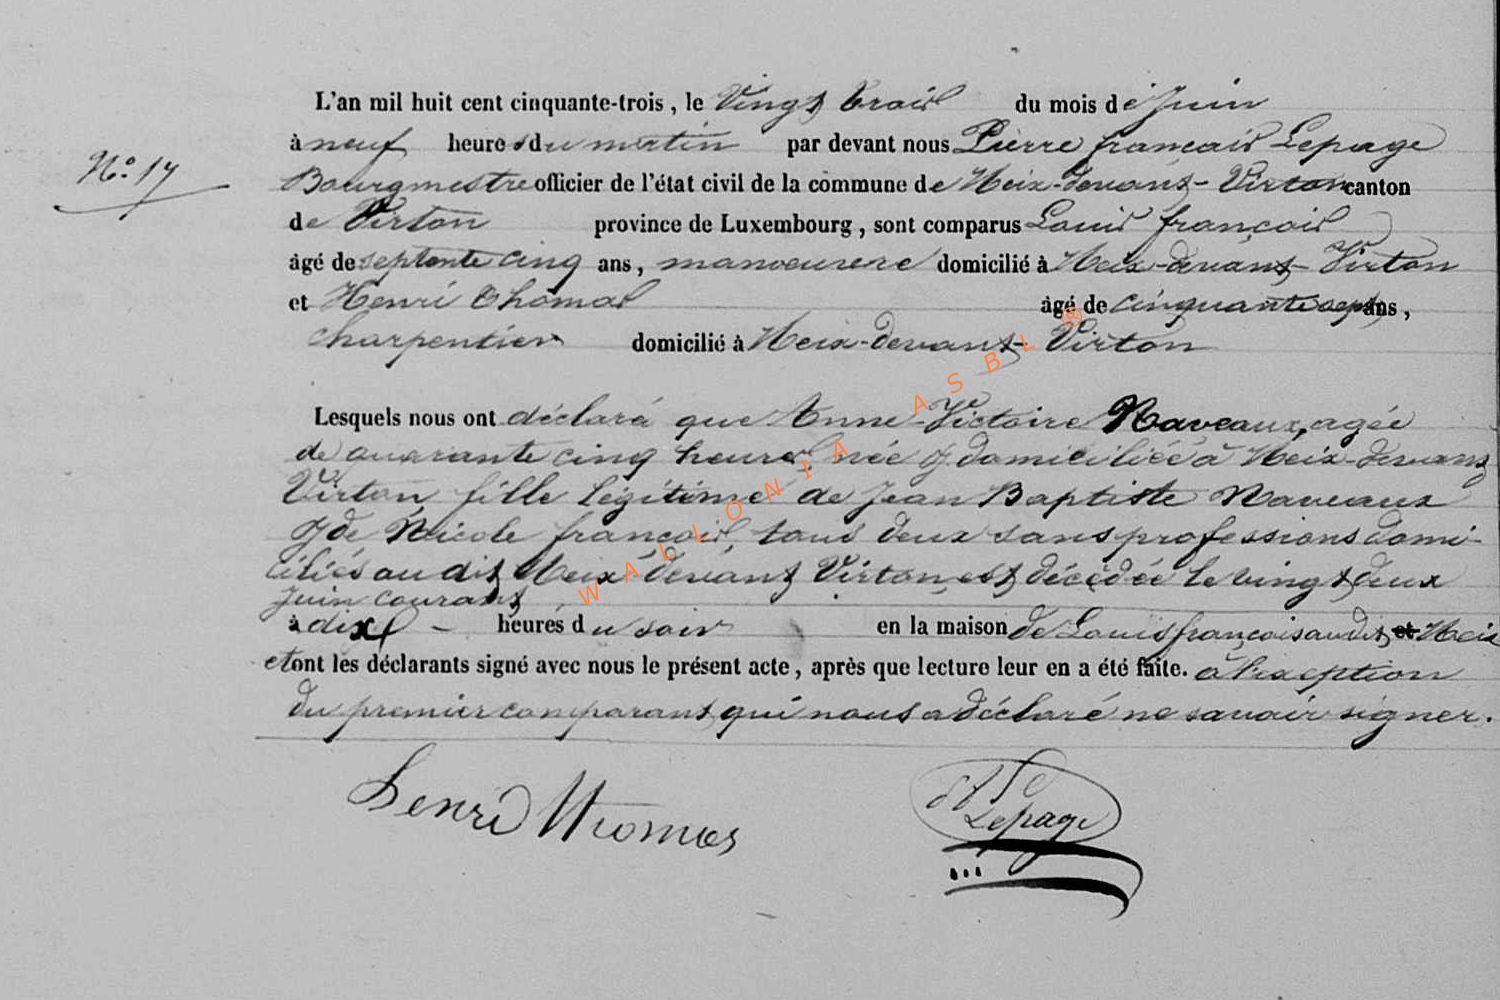 L'an mil huit cent cinquante-trois, le Vingt trois du mois de Juin
à neuf heures du matin par devant nous Pierre françois Lepage
N.º 17
Bourgmestre officier de l'état civil de la commune de Meix-devant-Virton canton
de Virton province de Luxembourg, sont comparus Louis françois
âgé de septante cinq ans, manoeuvre domicilié à Meix-devant-Virton
et Henri Thomas âgé de cinquante sept ans,
charpentier domicilié à Meix-devant-Virton
Lesquels nous ont déclaré que Anne-Victoire Naveaux, agée
de quarante cinq heures, née & domiciliée à Meix-devant
Virton, fille légitime de Jean Baptiste Naveaux
& de Nicole françois, tous deux sans professions domi-
ciliés au dit Meix-devant Virton, est décédée le vingt deux
Juin courant
à dix heures du soir en la maison de Louis françois audit Meix
et ont les déclarants signé avec nous le présent acte, après que lecture leur en a été faite. à l'exception
du premier comparant qui nous a déclaré ne savoir signer.
Henri Thomas
Lepage
WALLONIA ASBL ®